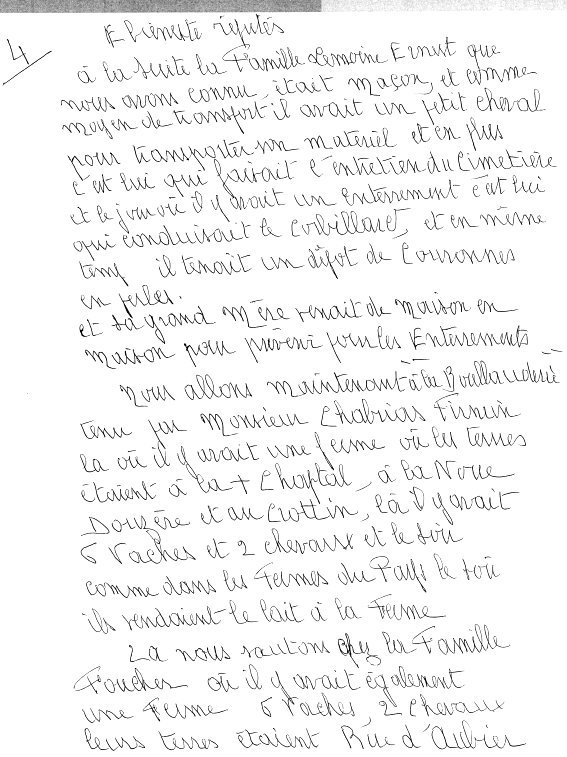 4
Ebéniste réputés
à la suite la Famille Lemoine Ernest que
nous avons connu, était maçon, et comme
moyen de transport il avait un petit cheval
pour transporter son materiel et en plus
c'est lui qui faisait l'entretien du Cimetière
et le jour où il y avait un enterrement c'est lui
qui conduisait le Corbillard, et en même
temp il tenait un dépot de Couronnes
en perles.
et sa grand Mère venait de maison en
maison pour prévenir pour les Enterrements
Nous allons maintenant à la Boullauderie
tenu par Monsieur Chabrias Firmin
la où il y avait une ferme où les terres
étaient à la + Chaptal, à la Noue
Douzère et au Crottin, là il y avait
6 Vaches et 2 chevaux et le soir
comme dans les Fermes du Pays le soir
ils vendaient le lait à la Ferme
La nous sautons chez la Famille
Foucher où il y avait également
une Ferme 6 Vaches, 2 chevaux
leurs terres étaient Rue d'Aubier